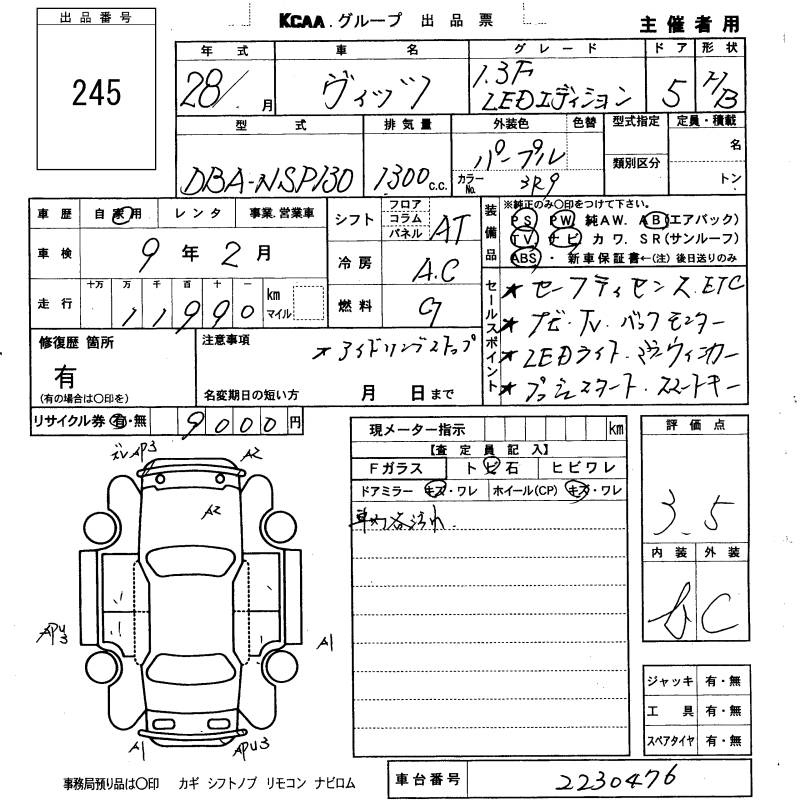 出品番号
245
KCAA.グループ 出品票
主催者用
年式 車名 グレード ドア 形状
28/ 月 ヴィッツ 1.3F LEDエディション 5 H/B
型式 排気量 外装色 色替 型式指定 定員・積載
DBA-NSP130 1300c.c. パープル カラーNo. 3R9 類別区分 名 トン
車歴 自家用 レンタ 事業.営業車
車検 9年2月
走行 十万 万 千 百 十 一 11990 km マイル
シフト フロア コラム パネル AT
冷房 A.C
燃料 G
装備品 ※純正のみ〇印をつけて下さい。
PS PW 純AW. AB(エアバック)
TV ナビ カワ. SR(サンルーフ)
ABS・新車保証書←(注)後日送りのみ
セールスポイント
★セーフティセンス. ETC
★ナビ・TV. バックモニター
★LEDライト・ドラウィンカー
★プッシュスタート. スマートキー
修復歴 箇所
有
(有の場合は〇印を)
注意事項
★アイドリングストップ
名変期日の短い方 月 日まで
リサイクル券 有・無 9000円
現メーター指示 km
【査定員記入】
Fガラス トビ石 ヒビワレ
ドアミラー キズ・ワレ ホイール(CP) キズ・ワレ
車内各汚れ.
評価点
3.5
内装 外装
b C
ジャッキ 有・無
工具 有・無
スペアタイヤ 有・無
AP3
A2
A2
APU3
A1
A1
APU3
事務局預り品は〇印 カギ シフトノブ リモコン ナビロム
車台番号 2230476